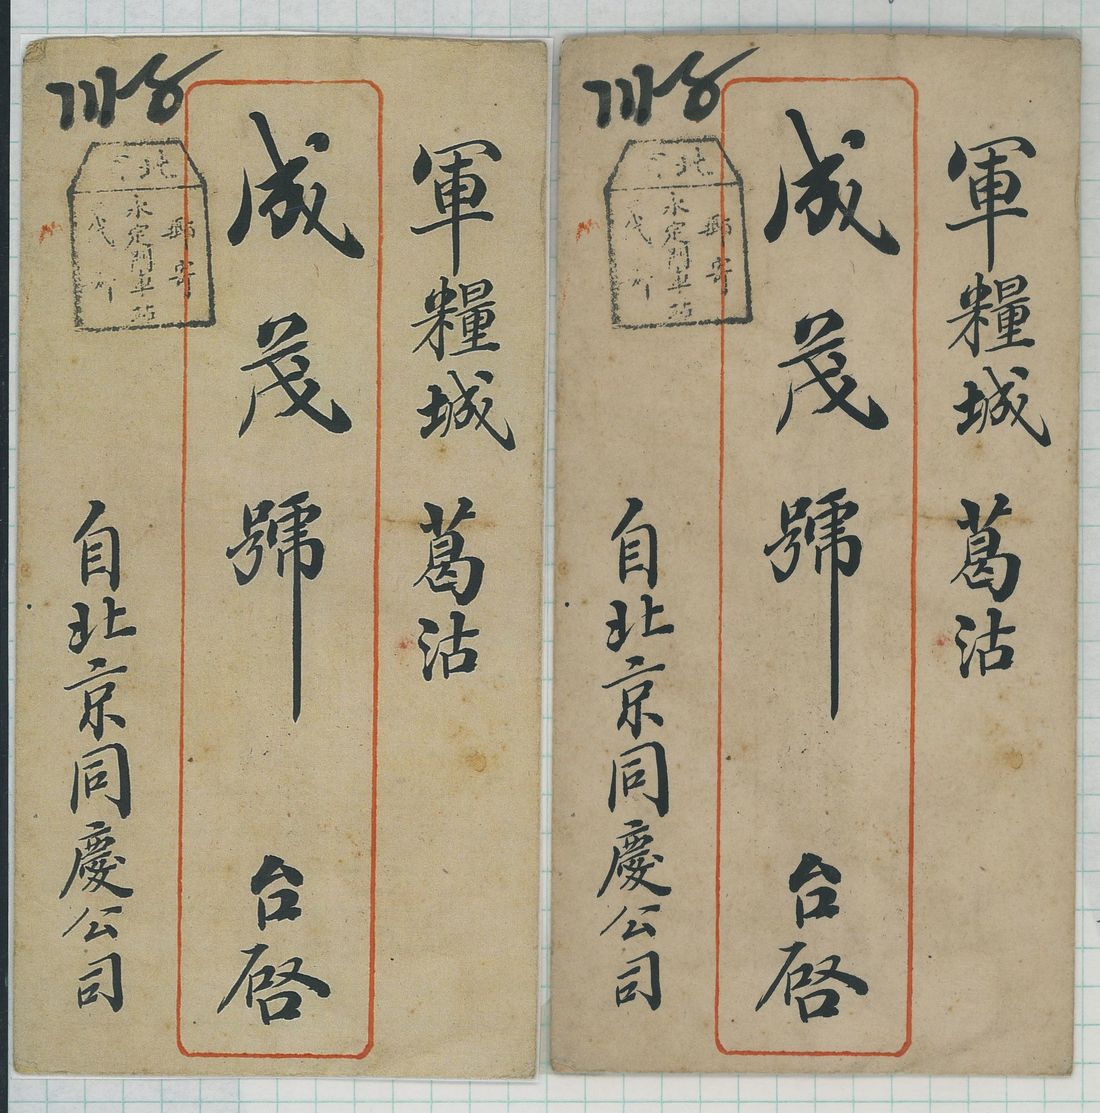 軍糧城 葛沽
成茂號 台啓
自北京同慶公司
北
郵寄
永定門車站
代所
軍糧城 葛沽
成茂號 台啓
自北京同慶公司
北
郵寄
永定門車站
代所